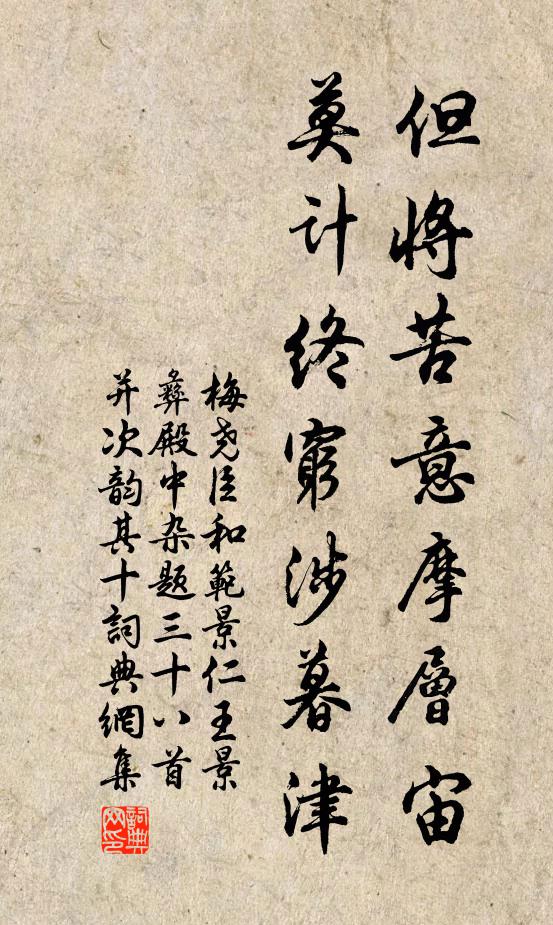 但將苦意摩層宙
莫计终窮涉暮津
梅尧臣和範景仁王景
彝殿中杂题三十八首
并次韵其十詞典網集
詞典
网印